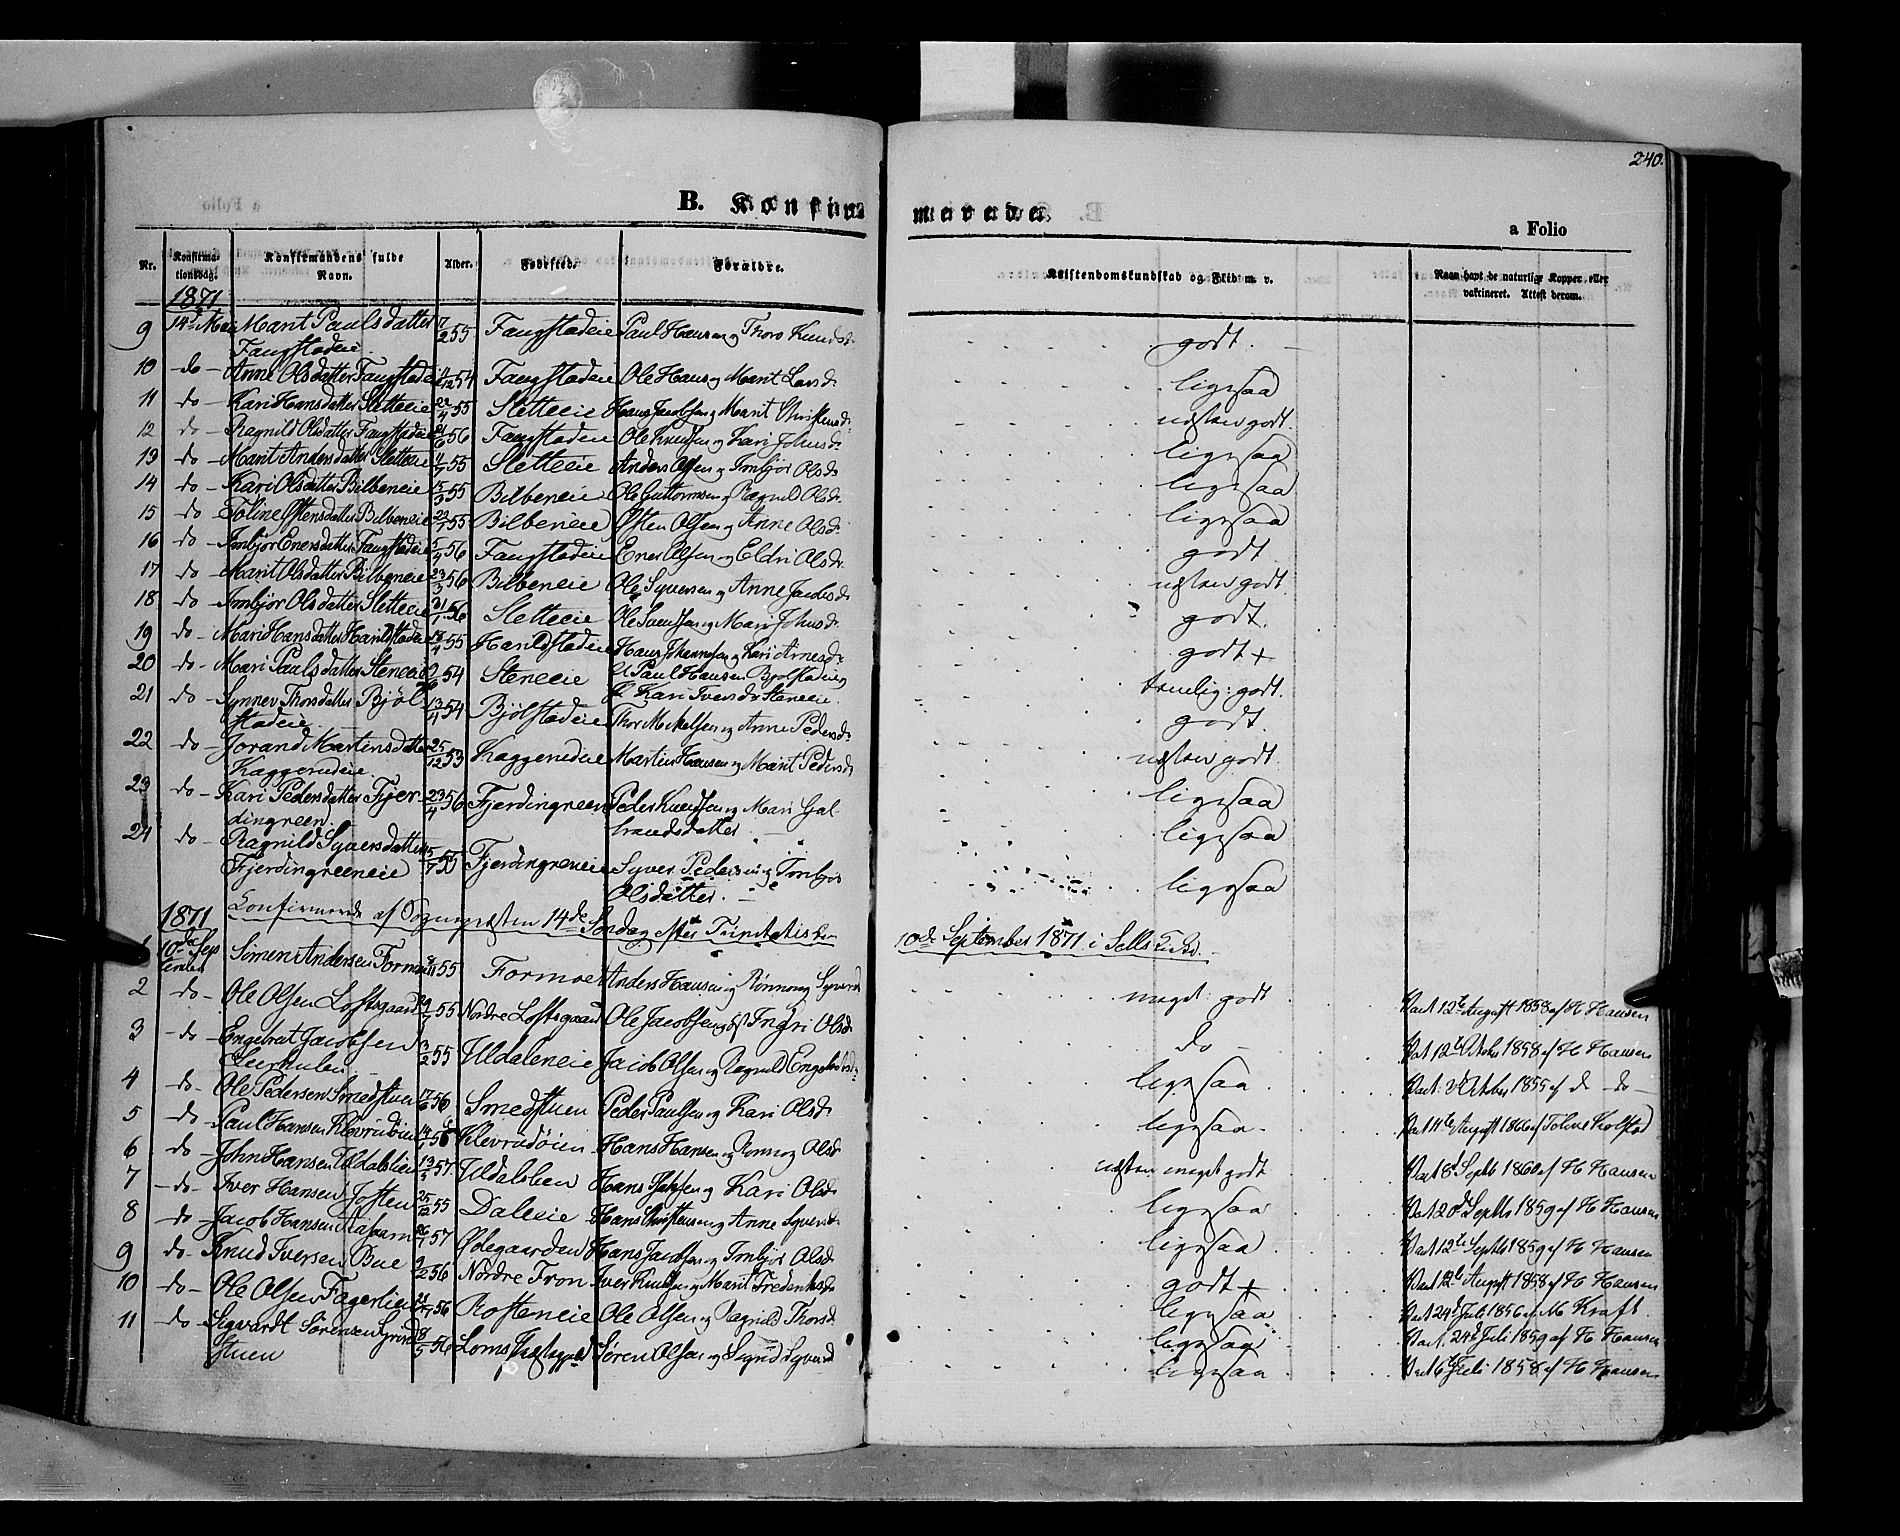 240.
B. Konfir
merede.
a Folio
Nr.
Konfirma-
tionsdag.
Konfirmandens fulde
Navn.
Alder.
Fødested.
Forældre.
Kristendomskundskab og Flid m. v.
Naar havt de naturlige Kopper eller
vakcineret. Attest derom.
1871
9 14de Mai Marit Paulsdatter 55 Faugstadeie Paul Hansen og Thoro Knudsd. godt.
Faugstadeie.
10 do Anne Olsdatter Faugstade 54 Faugstadeie Ole Hans og Marit Larsd. ligesaa
11 do Kari Hansdatter Sletteeie 55 Sletteeie Hans Jacobsen og Marit Christensd. næsten godt.
12 do Ragnild Olsdatter Faugstadeie 56 Faugstadeie Ole Knudsen og Kari Johnsd. ligesaa
13 do Marit Andersdatter Sletteeie 55 Sletteeie Anders Olsen og Imbjør Olsd. ligesaa
14 do Kari Olsdatter Bilbeneie 15/3 55 Bilbeneie Ole Guttormsen og Ragnild Olsd. ligesaa
15 do Toline Østensdatter Bilbeneie 55 Bilbeneie Østen Olsen og Anne Olsd. godt
16 do Imbjør Enersdatter Faugstadeie 56 Faugstadeie Ener Olsen og Eldri Olsd. næsten godt.
17 do Marit Olsdatter Bilbeneie 23/3 56 Bilbeneie Ole Syversen og Anne Jacobsd. godt.
18 do Imbjør Olsdatter Sletteeie 56 Sletteeie Ole Svendsen og Mari Johnsd. godt +
19 do Mari Hansdatter Harildstadeie 18/4 55 Harildstadeie Hans Johannesen og Kari Arnesd. temlig: godt.
20 do Mari Paulsdatter Steneeie 54 Steneeie U Paul Hansen Bjølstadeie godt.
P. Kari Iversd. Steneeie
21 do Synnev Thorsdatter Bjøl 13/4 54 Bjølstadeie Thor Mikelsen og Anne Pedersd. næsten godt.
stadeie.
22 do Jorand Martinsdatter 25/12 53 Kaggerudeie Martin Hansen og Marit Pedersd. ligesaa
Kaggerudeie.
23 do Kari Pedersdatter Fjer 23/4 56 Fjerdingreen Peder Knudsen og Mari Gul ligesaa
dingreen. brandsdatter
24 do Ragnild Syversdatter 55 Fjerdingreneie Syver Pedersen og Imbjør ligesaa
Fjerdingreeneie Olsdatter.
1871 Confirmerede af Sognepræsten 14de Søndag efter Trinitatis den 10de September 1871 i Sells Kirke.
1 10de Sep Simen Andersen Formoe 55 Formoe Anders Hansen og Rønnoug Syversd. meget godt Vact 12te August 1858 af H Hansen
tember
2 do Ole Olsen Loftsgaard 55 Nordre Loftsgaard Ole Jacobsen og Ingri Olsd. do Vact 12te Octobr 1858 af H Hansen
3 do Engebret Jacobsen 3/2 55 Uldaleneie Jacob Olsen og Ragnild Engebretsd. ligesaa Vact: October 1855 af do do
4 do Ole Pedersen Smedstuen 56 Smedstuen Peder Paulsen og Kari Olsd. ligesaa Vact August 1860 af Toline Kolstad
5 do Paul Hansen Klevrudøien 56 Klevrudøien Hans Hansen og Rønnog Olsd. næsten meget godt Vact 8de Septb 1860 af H Hansen
6 do John Hansen Uldalslien 57 Uldalslien Hans og Kari Olsd. ligesaa Vact 20de Septb 1859 af H Hansen
7 do Iver Hansen Josten 25/12 55 Daleeie Hans Christensen og Anne Syversd. ligesaa Vact 12te Septb 1859 af H Hansen
8 do Jacob Hansen 57 Ødegaarden Hans Jacobsen og Imbjør Olsd. godt + Vact 12te August 1858 af H Hansen
9 do Knud Iversen Bue 56 Nordre Fron Iver Knudsen og Marit Frederiksd. ligesaa Vact 24de Juli 1856 af M Kraft
10 do Ole Olsen Fagerlien 56 Rosteneie Ole Olsen og Ragnild Thorsd. ligesaa Vact. 24de Juli 1859 af H Hansen
11 do Sigvardt Sørensen 8/5 56 Loms Søren Olsen og Sigrid Syversd. ligesaa Vact 6te Juli 1858 af H Hansen
stuen